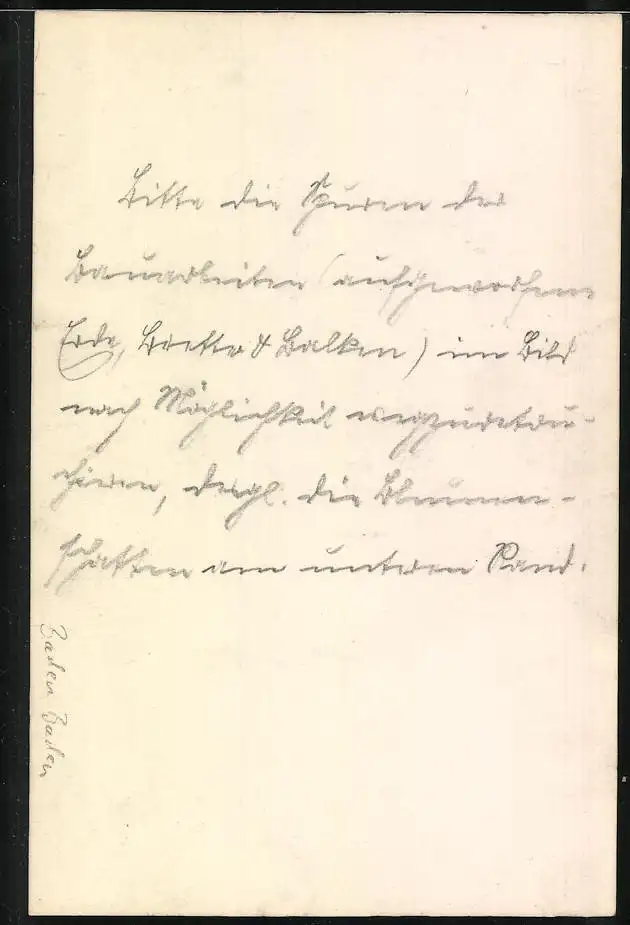 Bitte die Spuren der
Bauarbeiten (aufgeworfene
Erde, Bretter & Balken) im Bild
nach Möglichkeit wegzuretou-
chieren, desgl. die Blumen-
schatten am unteren Rand.
Baden Baden